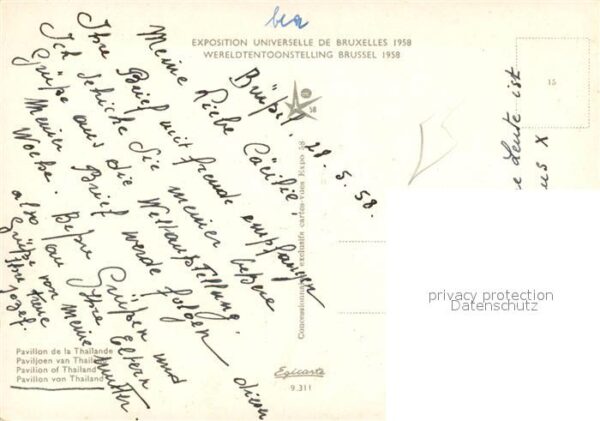 bea
EXPOSITION UNIVERSELLE DE BRUXELLES 1958
WERELDTENTOONSTELLING BRUSSEL 1958
58
15
28.5.58.
Meine liebe Cäcilie!
Ihre Brief mit freude empfangen
Ich schicke Sie meine beste
Grüße aus die Weltaustellung.
Meiner Brief werde folgen diesen
Woche. Beste Grüßen und
also an Ihre Eltern
Grüße von meine Mutter.
Ihr treue
Jozef.
e Leute ist
us X
Concessionnaire exclusifs cartes-vues Expo 58
privacy protection
Datenschutz
Pavillon de la Thaïlande
Paviljoen van Thailand
Pavilion of Thailand
Pavillon von Thailand
Egicarte
9.311